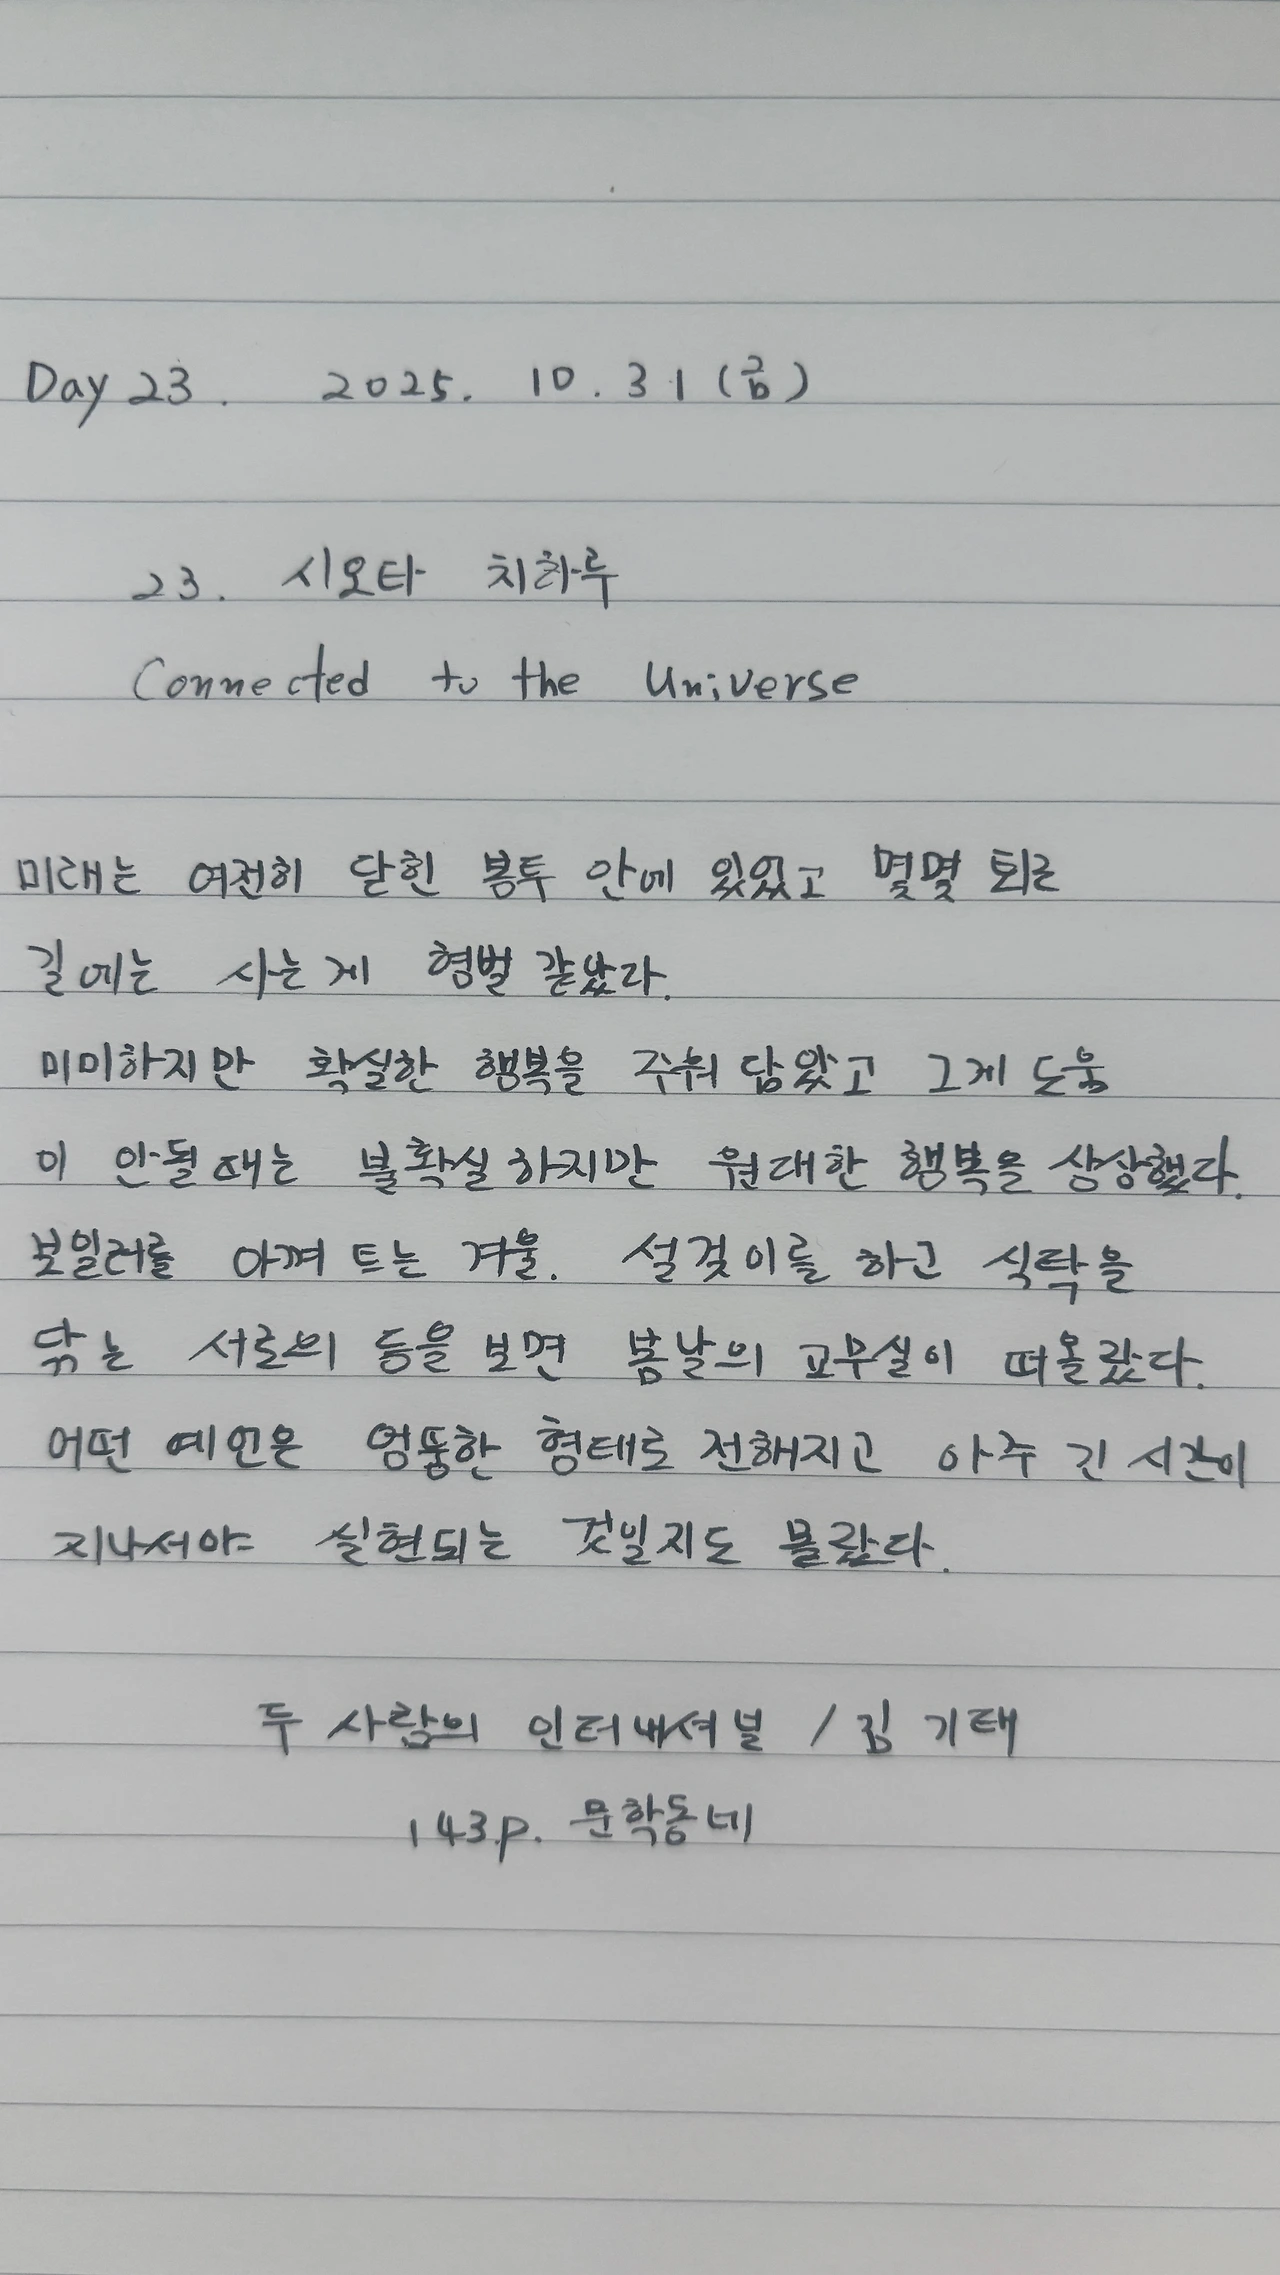 Day 23. 2025. 10. 31 (금)
23. 시오타 치하루
Connected to the Universe
미래는 여전히 닫힌 봉투 안에 있었고 몇몇 퇴근
길에는 사는게 형벌 같았다.
미미하지만 확실한 행복을 주워 담았고 그게 도움
이 안될때는 불확실하지만 원대한 행복을 상상했다.
보일러를 아껴 트는 겨울. 설겆이를 하고 식탁을
닦는 서로의 등을 보면 봄날의 교무실이 떠올랐다.
어떤 예언은 엉뚱한 형태로 전해지고 아주 긴 시간이
지나서야 실현되는 것일지도 몰랐다.
두 사람의 인터내셔널 / 김 기태
143p. 문학동네